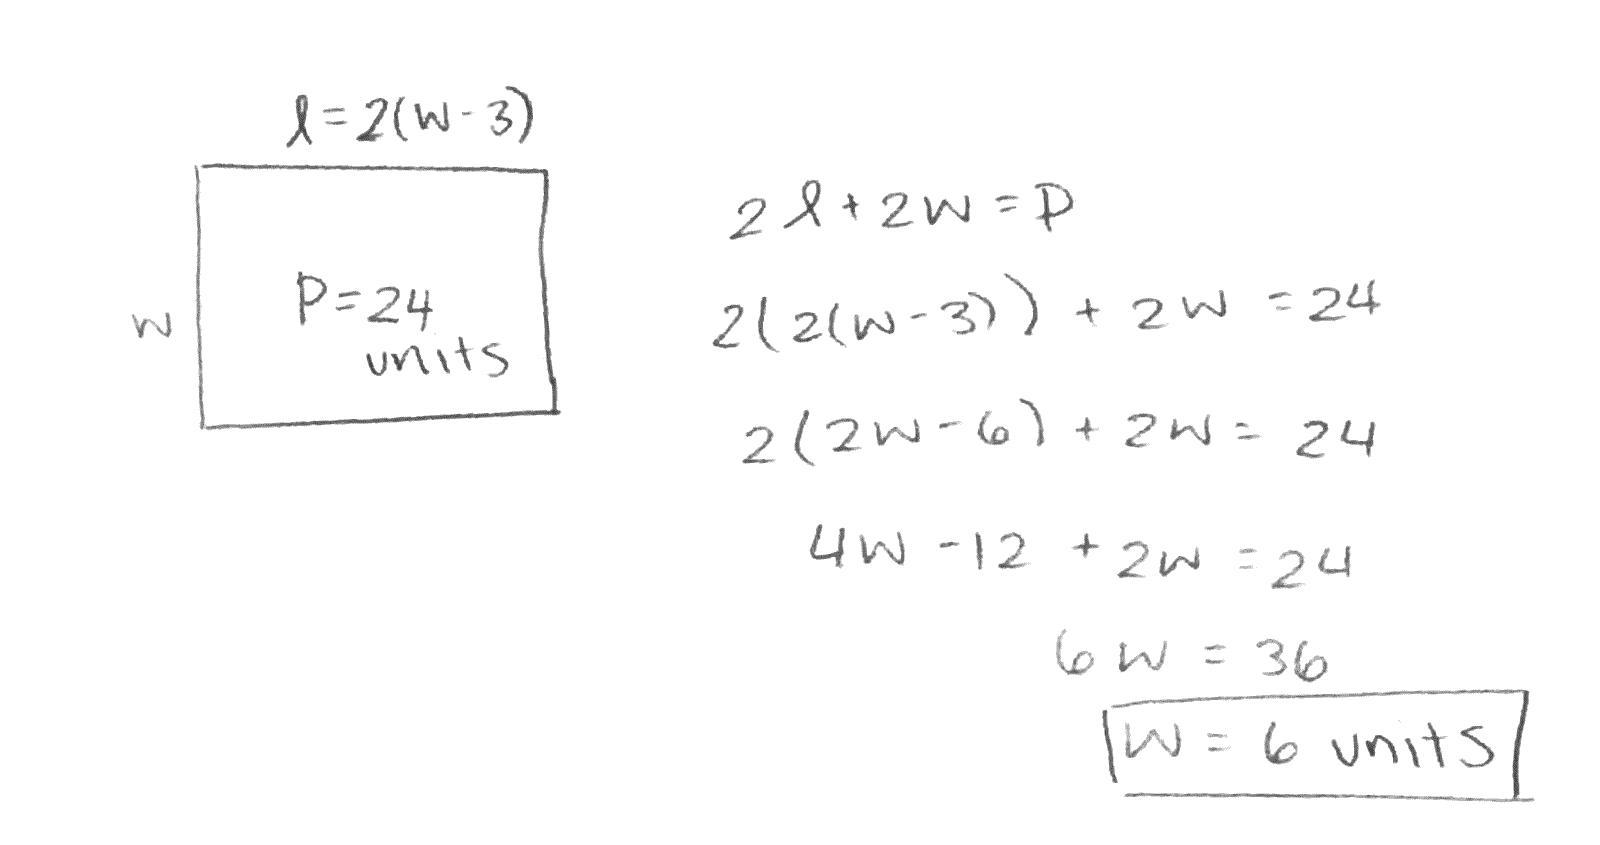 l=2(w-3)
w
P=24
units
2l+2w=P
2(2(w-3))+2w=24
2(2w-6)+2w=24
4w-12+2w=24
6w=36
w=6 units